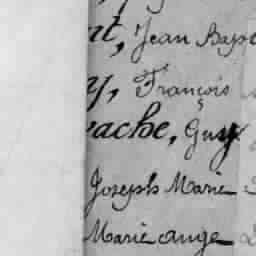 nt, Jean Bapt
y, François
vache, Guy
Joseph Marie
Marie ange